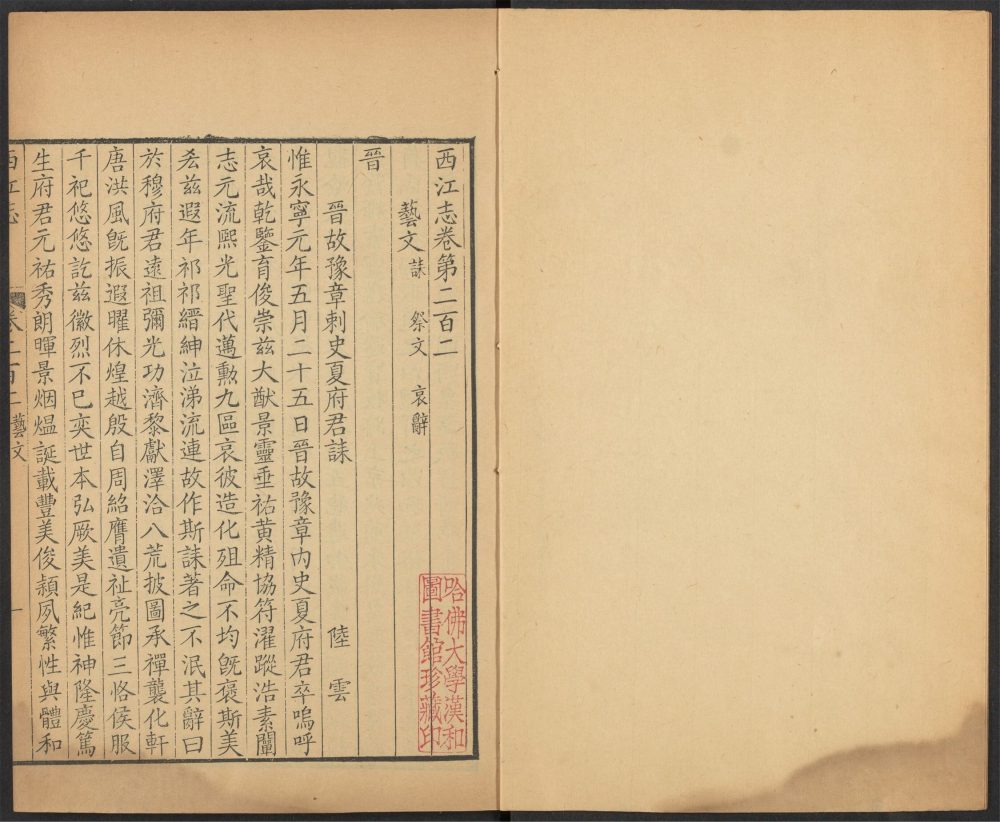 西江志卷第二百二
藝文 誄 祭文 哀辭
晉
晉故豫章刺史夏府君誄 陸雲
惟永寧元年五月二十五日晉故豫章內史夏府君卒嗚呼
哀哉乾鑒育俊崇兹大猷景靈垂祐黃精協符濯蹤浩素闡
志元流熙光聖代邁勲九區哀彼造化殂命不均旣褒斯美
叅兹遐年祁祁縉紳泣涕流連故作斯誄著之不泯其辭曰
於穆府君遠祖彌光功濟黎獻澤洽八荒披圖承禪襲化軒
唐洪風旣振遐曜休煌越殷自周紹膺遺祉亮節三恪侯服
千祀悠悠訖兹徽烈不已奕世本弘厥美是紀惟神隆慶篤
生府君元祐秀朗暉景烟煴誕載豐美俊穎夙繁性與體和
西江志 卷二百二 藝文 一
哈佛大學漢和
圖書館珍藏印